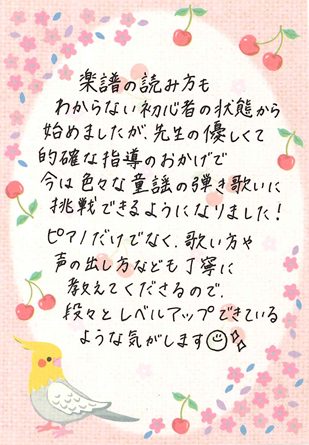 楽譜の読み方も
わからない初心者の状態から
始めましたが、先生の優しくて
的確な指導のおかげで
今は色々な童謡の弾き歌いに
挑戦できるようになりました！
ピアノだけでなく、歌い方や
声の出し方なども丁寧に
教えてくださるので、
段々とレベルアップできている
ような気がします